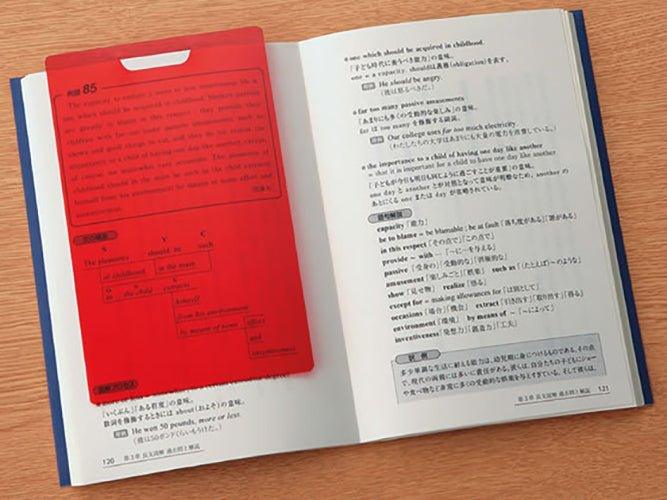 例題 85
The capacity to endure a more or less monotonous life is
one which should be acquired in childhood. Modern parents
are greatly to blame in this respect; they provide their
children with far too many passive amusements, such as
shows and good things to eat, and they do not realize the
importance to a child of having one day like another, except,
of course, for somewhat rare occasions. The pleasures of
childhood should in the main be such as the child extracts
himself from his environment by means of some effort and
inventiveness.
S V C
The pleasures should be such
of childhood in the main
O S V
as the child extracts
himself
from his environment
by means of some effort
and
inventiveness
「いくぶん」「ある程度」の意味。
数詞を修飾するときには about(およそ)の意味。
He won 50 pounds, more or less.
(彼は50ポンドぐらいもうけた。)
120 第3章 長文読解 過去問と解説
one which should be acquired in childhood.
「子ども時代に養うべき能力」の意味。
one = a capacity. shouldは義務(obligation)を表す。
He should be angry.
(彼は怒るべきだ。)
far too many passive amusements
「あまりにも多くの受動的な楽しみ」の意味。
far は too many を修飾する副詞。
Our college uses far too much electricity.
(わたしたちの大学はあまりにも大量の電力を消費している。)
the importance to a child of having one day like another
= that it is important for a child to have one day like another
「子どもが今日も明日も同じように過ごすことが重要」の意味。
one day と another とが対照となって意味が明瞭なため、another の
あとにくる one または day が省略されている。
語句解説
capacity「能力」
be to blame = be blamable; be at fault「落ち度がある」「罪がある」
in this respect「その点で」「この点で」
provide ~ with …「~に…を与える」
passive「受身の」「受動的な」「消極的な」
amusement「楽しみごと」「娯楽」 such as「(たとえば)~のような」
show「見せ物」 realize「悟る」
except for = making allowances for「は別として」
occasions「場合」「機会」 extract「引き出す」「取り出す」「得る」
environment「環境」 by means of ~「~によって」
inventiveness「発想力」「創造力」「工夫」
訳 例
多少単調な生活に耐える能力は、幼児期に身につけるものである。その点
で、現代の両親には多いに責任がある。彼らは、自分たちの子どもにショー
や食べ物など非常に多くの受動的な娯楽を与えすぎている。そして彼らは、
第3章 長文読解 過去問と解説 121